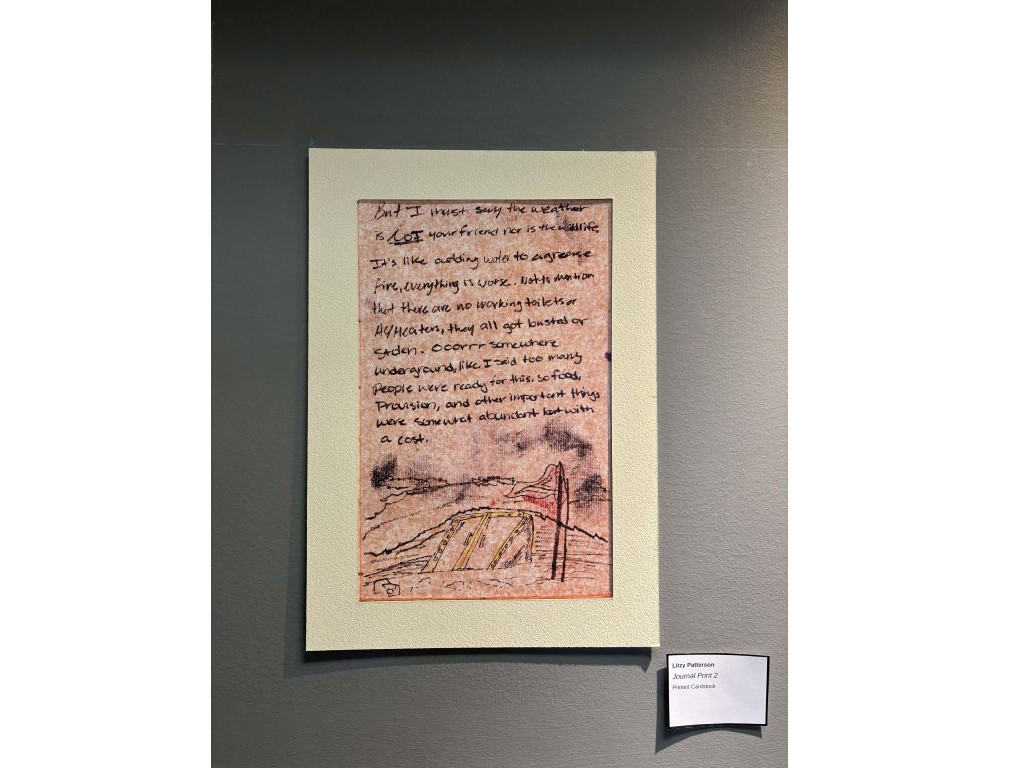 But I must say the weather
is NOT your friend nor is the wildlife.
It's like adding water to a grease
fire, everything is worse. Not to mention
that there are no working toilets or
AC/Heaters, they all got busted or
stolen. Ooorrr somewhere
underground, like I said too many
People were ready for this. So food,
Provision, and other important things
were somewhat abundant but with
a cost.
Litzy Patterson
Journal Print 2
Printed Cardstock